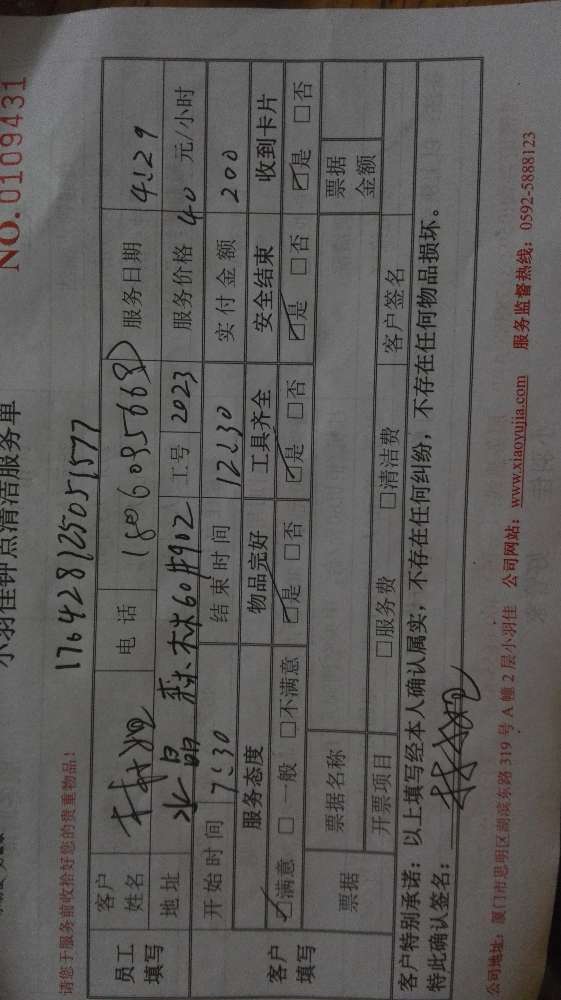 小羽佳钟点清洁服务单
NO.0109431
请您于服务前收拾好您的贵重物品！
1764281250511577
员工填写
客户姓名
电话
服务日期 4.29
地址 水晶森林60#902 工号 2023 服务价格 40 元/小时
客户填写
开始时间 7:30 结束时间 12:30 实付金额 200
服务态度 物品完好 工具齐全 安全结束 收到卡片
☑满意 □一般 □不满意 ☑是 □否 ☑是 □否 ☑是 □否 ☑是 □否
票据 票据名称 票据金额
开票项目 □服务费 □清洁费 客户签名
客户特别承诺：以上填写经本人确认属实，不存在任何纠纷，不存在任何物品损坏。
特此确认签名：
公司地址：厦门市思明区湖滨东路319号A幢2层小羽佳 公司网站：www.xiaoyujia.com 服务监督热线：0592-5888123